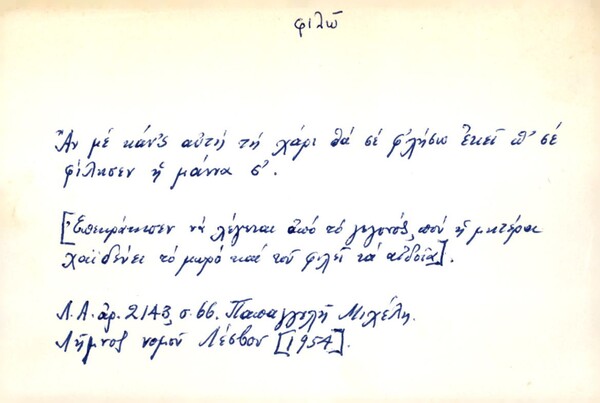 φιλῶ
Ἂν μὲ κάν'ς αὐτὴ τὴ χάρι θὰ σὲ φ'λήσω ἐκεῖ π' σὲ
φίλησεν ἡ μάννα σ'.
[Ἐπεκράτησεν νὰ λέγεται ἀπὸ τὸ γεγονός, ποὺ ἡ μητέρα
χαϊδεύει τὸ μωρὸ καὶ τοῦ φιλεῖ τὰ αἰδοῖα].
Λ.Α. ἀρ. 2143, σ. 66. Παπαγγελῆ Μιχέλη.
Λῆμνος νομοῦ Λέσβου [1954].